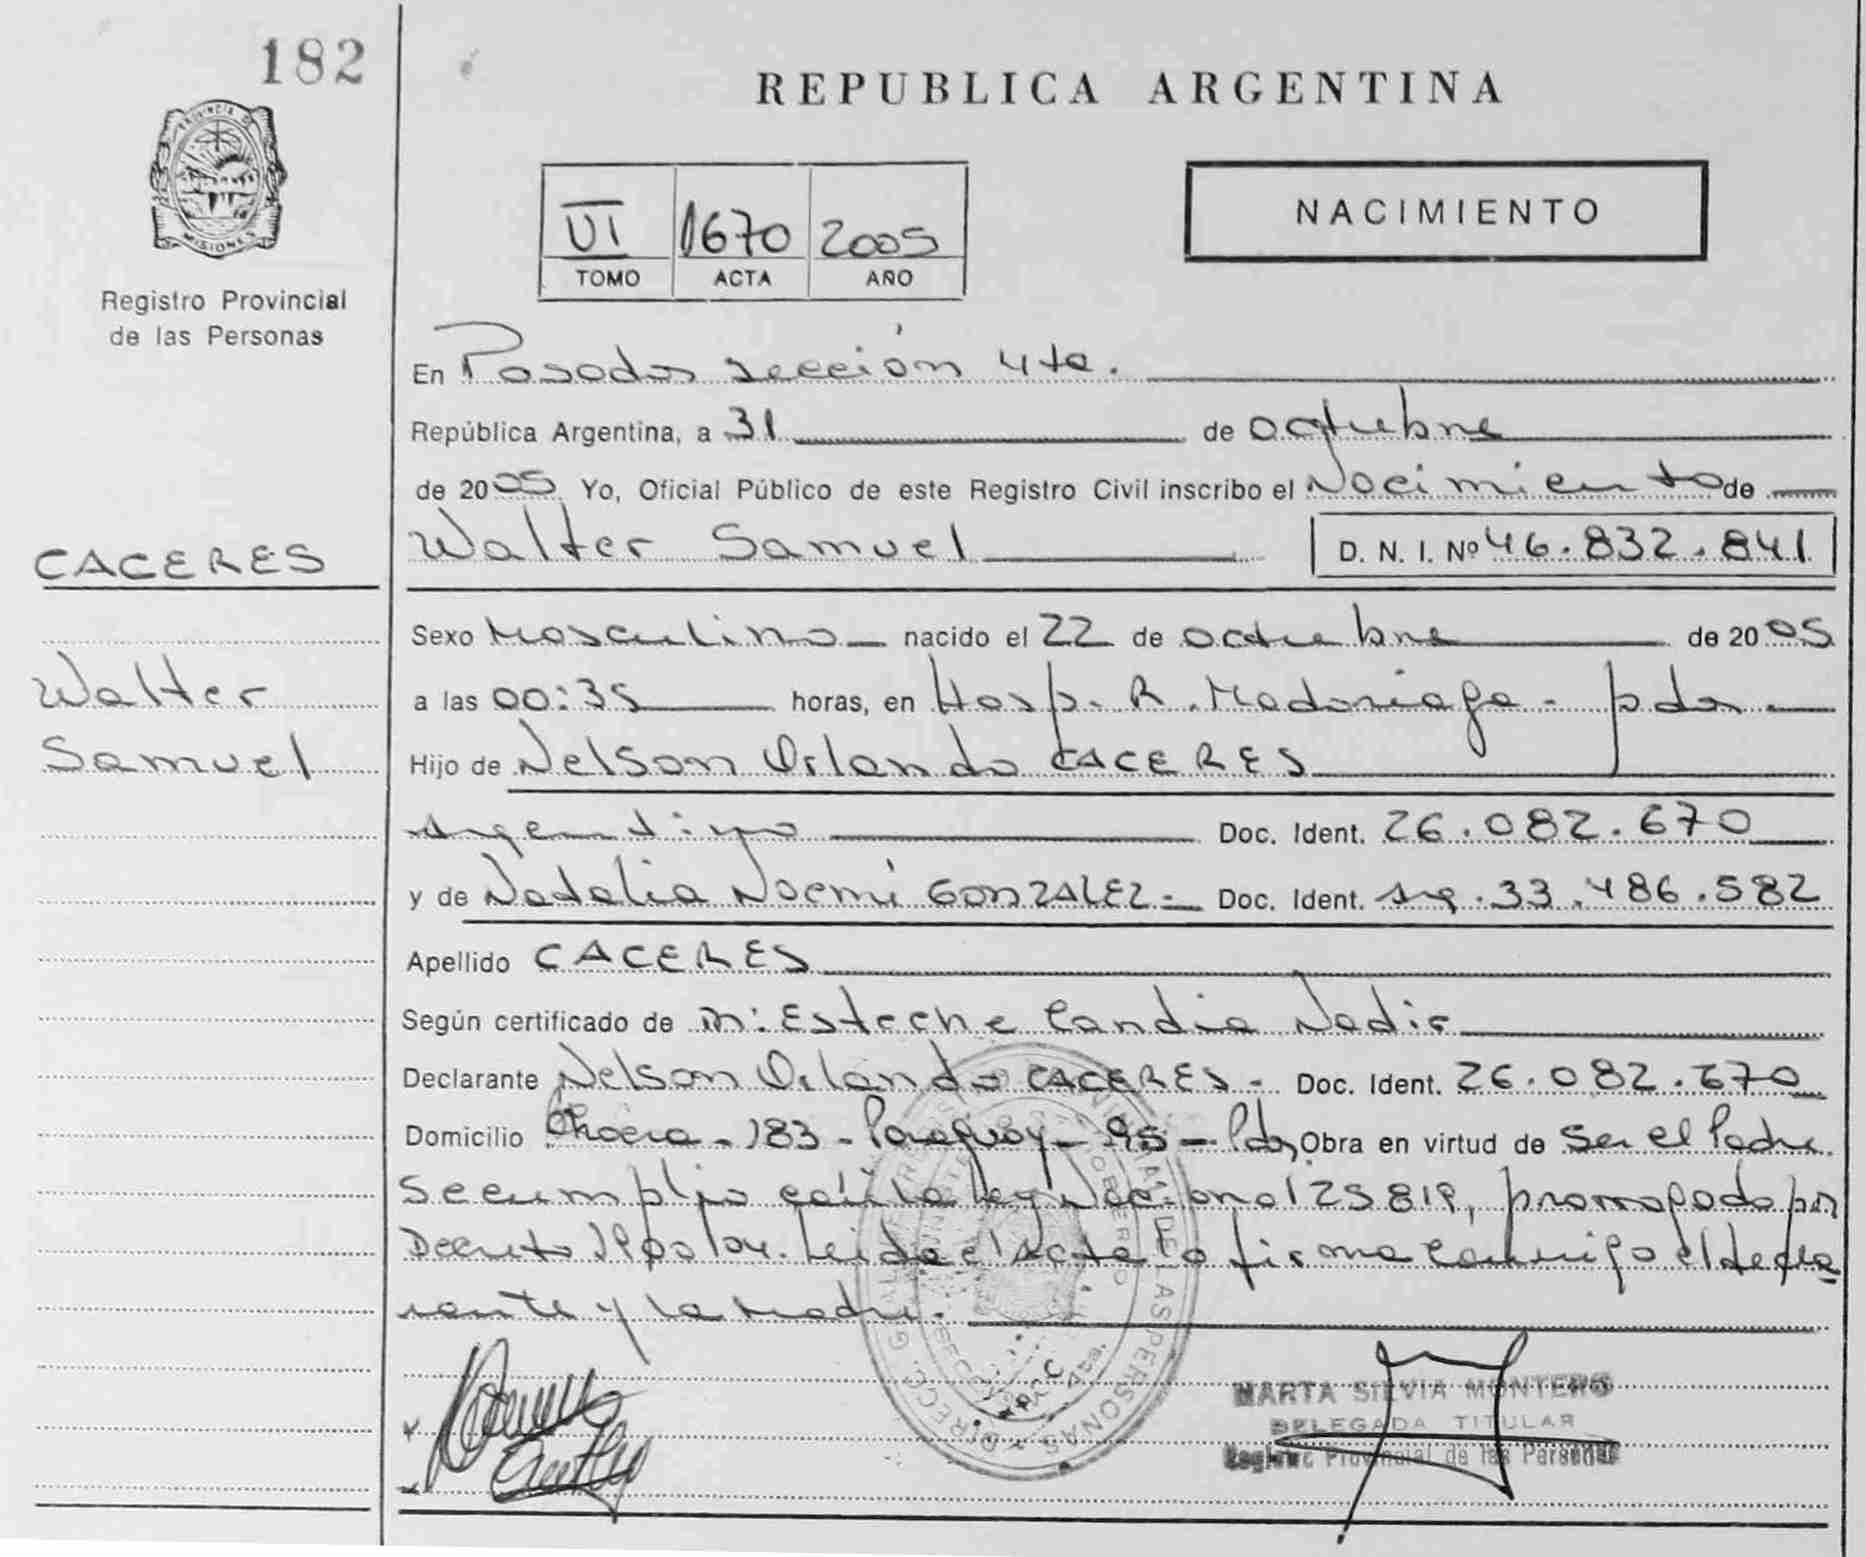 182
REPUBLICA ARGENTINA
PROVINCIA D
MISIONES
Registro Provincial
de las Personas
VI 1670 2005
TOMO ACTA AÑO
NACIMIENTO
En Posadas sección 4ta.
República Argentina, a 31 de octubre
de 2005 Yo, Oficial Público de este Registro Civil inscribo el Nacimiento de
CACERES
Walter Samuel D. N. I. Nº 46.832.841
Sexo Masculino nacido el 22 de octubre de 2005
Walter
Samuel
a las 00:35 horas, en Hosp. R. Madariaga - pdas
Hijo de Nelson Orlando CACERES
argentino Doc. Ident. 26.082.670
y de Natalia Noemí GONZALEZ - Doc. Ident. arg. 33.486.582
Apellido CACERES
Según certificado de m: Esteche Candia Nadia
Declarante Nelson Orlando CACERES - Doc. Ident. 26.082.670
Domicilio 183 - Paraguay - 95 - Pdas, Obra en virtud de ser el Padre
Se cumplio con la ley Nacional 25819, promogado por
Decreto 1900/04. Leida el Acta la firma conmigo el decla
rante y la madre.
MARTA SILVIA MONTERO
DELEGADA TITULAR
Registro Provincial de las Personas
DE LAS PERSONAS